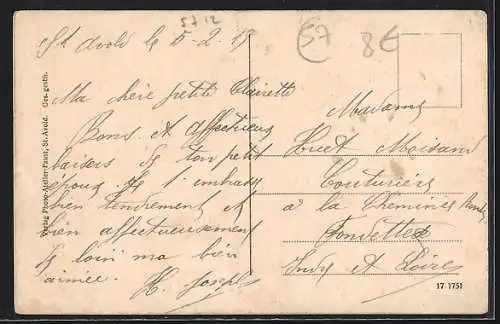 57 12
57
8€
St Avold le 5-2-19
Ma chère petite Clairette
Bons et affectueux
baisers de ton petit
époux qui t'embrasse
bien tendrement et
bien affectueusement
de loin ma bien
aimée.
H. Joseph
Madame
Huet Moisand
Couturière
à la Cheminée
Fondettes
Indre et Loire
Verlag Photo-Atelier Faust, St. Avold. Ges. gesch.
17 1751